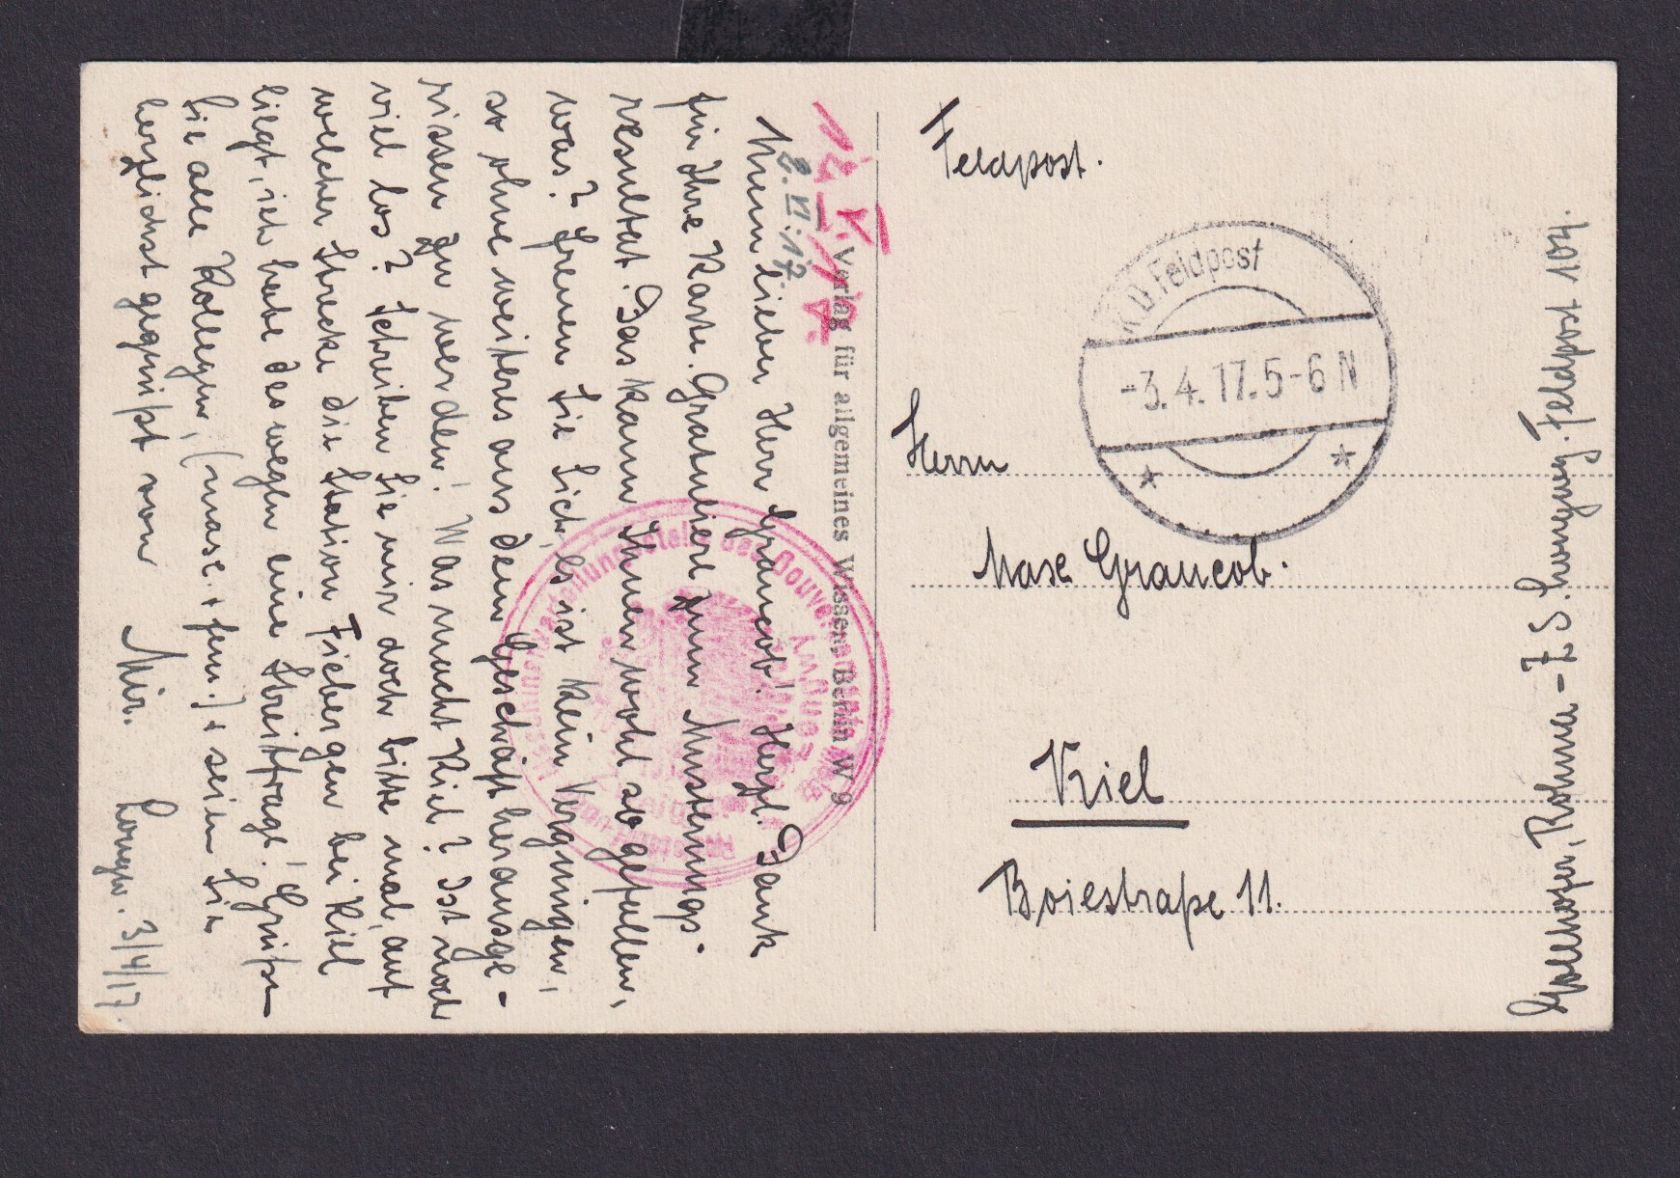 Feldpost.
K.D. Feldpost
-3.4.17.5-6 N
Herrn
Max Grancob.
Kiel
Boiestraße 11.
Rohma - Z S. Feldpost 104.
Verlag für allgemeines Wissen, Berlin W 9
8.VI.17
Mein lieber Herr Grancob! Herzl. Dank
für Ihre Karte. Gratuliere zum Musterungs-
resultat. Das kann Ihnen wohl so gefallen,
was? Freuen Sie Sich, es ist kein Vergnügen,
so ohne weiteres aus dem Geschäft herausge-
rissen zu werden! Was macht Kiel? Ist noch
viel los? Schreiben Sie mir doch bitte mal, auf
welcher Strecke die Station Fiebergen bei Kiel
liegt, ich habe deswegen eine Streitfrage! Grüßen
Sie alle Kollegen, (masc. + fem.) + seien Sie
herzlichst gegrüßt von
Longw. 3/4/17.